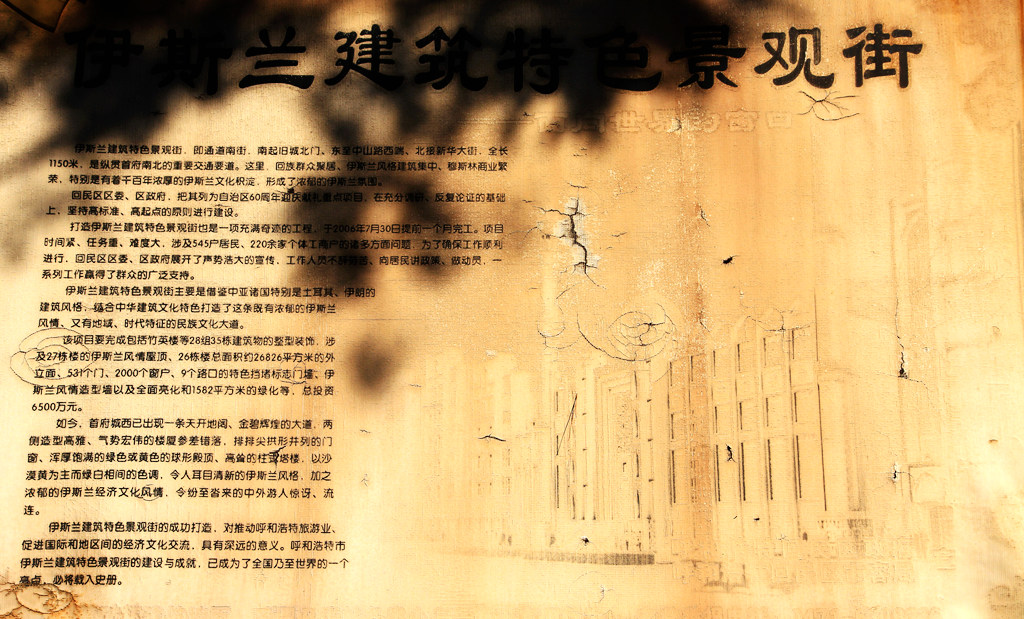 伊斯兰建筑特色景观街
世界的窗口
伊斯兰建筑特色景观街，即通道南街，南起旧城北门，东至中山路西端，北接新华大街，全长
1150米，是纵贯首府南北的重要交通要道。这里，回族群众聚居、伊斯兰风格建筑集中、穆斯林商业繁
荣，特别是有着千百年浓厚的伊斯兰文化积淀，形成了浓郁的伊斯兰氛围。
回民区区委、区政府，把其列为自治区60周年迎庆献礼重点项目，在充分调研、反复论证的基础
上，坚持高标准、高起点的原则进行建设。
打造伊斯兰建筑特色景观街也是一项充满奇迹的工程，于2006年7月30日提前一个月完工。项目
时间紧、任务重、难度大，涉及545户居民、220余家个体工商户的诸多方面问题，为了确保工作顺利
进行，回民区区委、区政府展开了声势浩大的宣传，工作人员不辞劳苦、向居民讲政策、做动员，一
系列工作赢得了群众的广泛支持。
伊斯兰建筑特色景观街主要是借鉴中亚诸国特别是土耳其、伊朗的
建筑风格，结合中华建筑文化特色打造了这条既有浓郁的伊斯兰
风情、又有地域、时代特征的民族文化大道。
该项目要完成包括竹英楼等28组35栋建筑物的整型装饰，涉
及27栋楼的伊斯兰风情屋顶、26栋楼总面积约26826平方米的外
立面、531个门、2000个窗户、9个路口的特色挡堵标志门墙、伊
斯兰风情造型墙以及全面亮化和1582平方米的绿化等，总投资
6500万元。
如今，首府城西已出现一条天开地阔、金碧辉煌的大道，两
侧造型高雅、气势宏伟的楼厦参差错落，排排尖拱形并列的门
窗、浑厚饱满的绿色或黄色的球形殿顶、高耸的柱式塔楼，以沙
漠黄为主而绿白相间的色调，令人耳目清新的伊斯兰风格，加之
浓郁的伊斯兰经济文化风情，令纷至沓来的中外游人惊讶、流
连。
伊斯兰建筑特色景观街的成功打造，对推动呼和浩特旅游业、
促进国际和地区间的经济文化交流，具有深远的意义。呼和浩特市
伊斯兰建筑特色景观街的建设与成就，已成为了全国乃至世界的一个
亮点，必将载入史册。